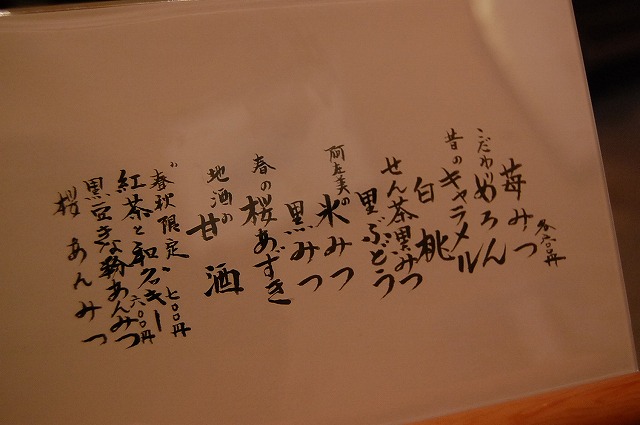 苺みつ 各六〇〇円
こだわりめろん
昔のキャラメル
白桃
せん茶黒みつ
黒ぶどう
阿左美の氷みつ
黒みつ
春の桜あずき
地酒の甘酒
春秋限定
紅茶と和クッキー 七〇〇円
黒豆きな粉あんみつ 六〇〇円
桜あんみつ